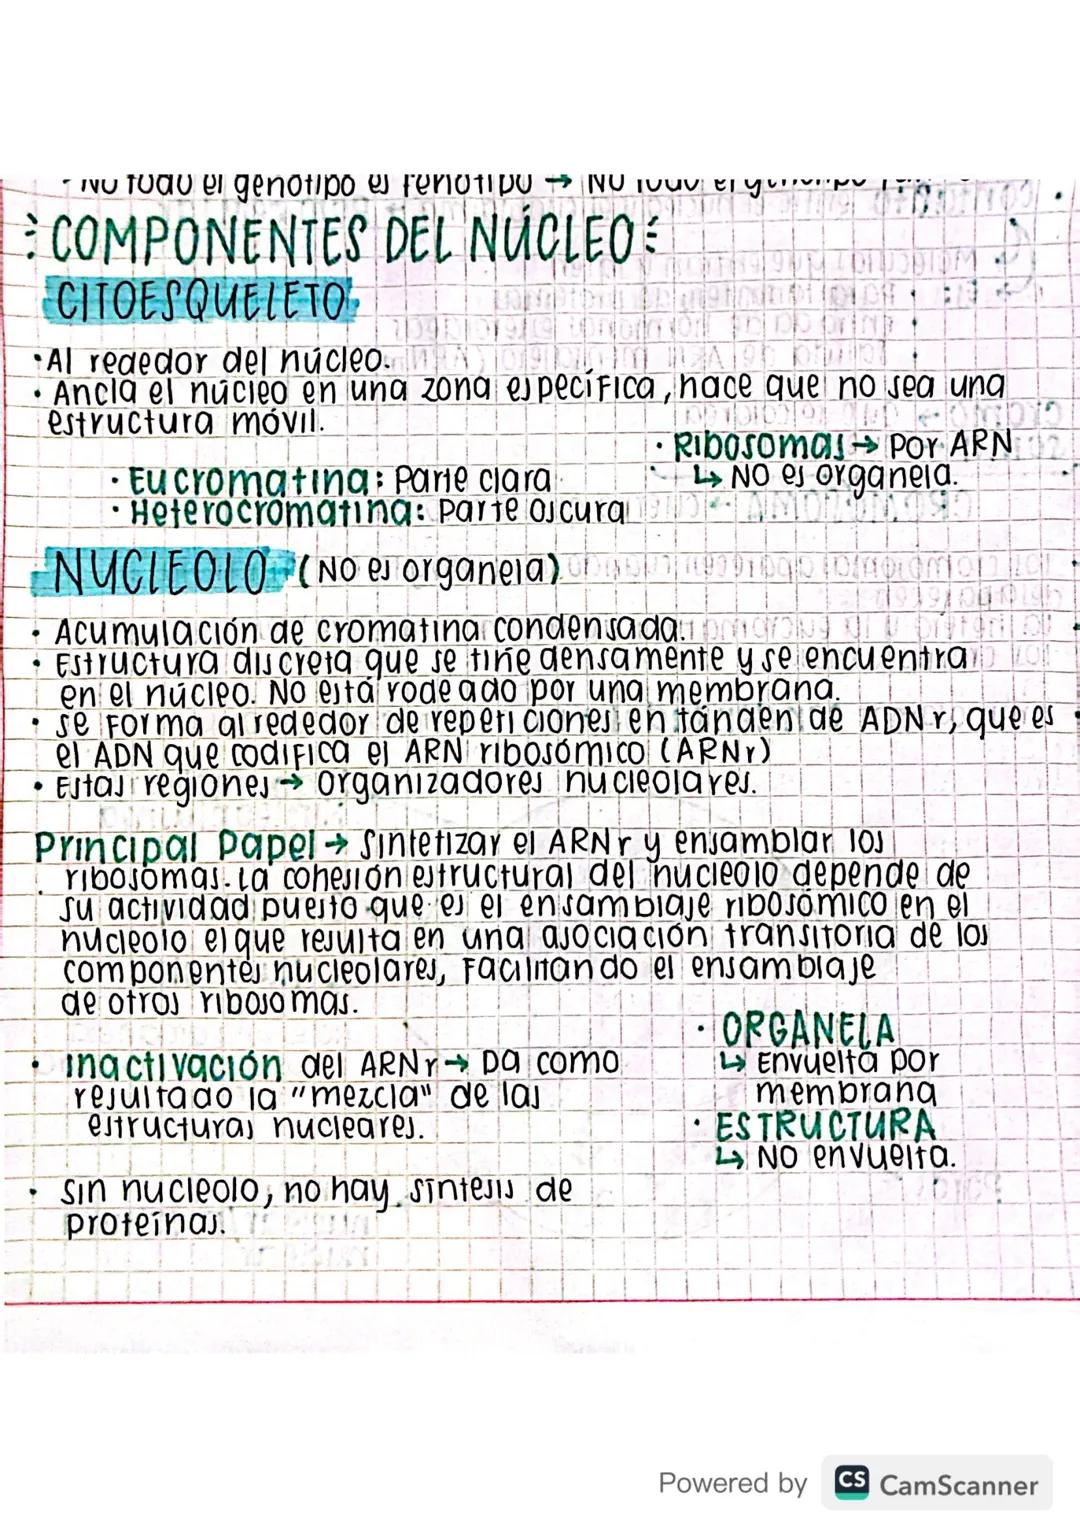 · No todo el genotipo es fenotipo → No todo el
COMPONENTES DEL NÚCLEO
CITOESQUELETO
· Al rededor del núcleo.
· Ancla el núcleo en una zona específica, hace que no sea una
estructura móvil.
· Ribosomas → Por ARN
↳ NO es organela.
· Eucromatina: Parte clara
· Heterocromatina: Parte oscura
NUCLEOLO (No es organela)
· Acumulación de cromatina condensada.
· Estructura discreta que se tiñe densamente y se encuentra
en el núcleo. No está rodeado por una membrana.
· se forma al rededor de repeticiones en tánden de ADNr, que es
el ADN que codifica el ARN ribosómico (ARNr)
· Estas regiones → organizadores nucleolares.
Principal Papel → Sintetizar el ARNr y ensamblar los
ribosomas. La cohesión estructural del nucleolo depende de
su actividad puesto que es el ensamblaje ribosómico en el
nucleolo el que resulta en una asociación transitoria de los
componentes nucleolares, facilitando el ensamblaje
de otros ribosomas.
· Inactivación del ARNr → Da como
resultado la "mezcla" de las
estructuras nucleares.
· ORGANELA
↳ Envuelta por
membrana
· ESTRUCTURA
↳ NO envuelta.
· Sin nucleolo, no hay síntesis de
proteínas.
Powered by CS CamScanner